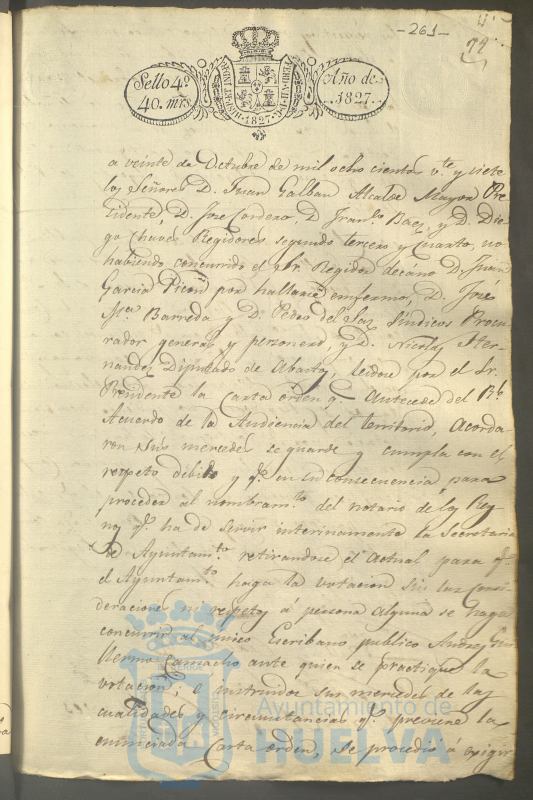 -261-
Sello 4º
40. mrs
HISP. ET IND. R. 1827.
Año de
1827.
a veinte de Octubre de mil ocho cientos v.te y siete
los Señores D. Juan Galban Alcalde Mayor Pre
sidente, D. Jose Cordero, D. Fran.co Baez, y D. Die
go Chaves Regidores, segundo tercero y Cuarto, no
habiendo concurrido el Sr. Regidor decano D. Juan
Garcia por hallarse enfermo, D. José
M.a Barreda y D. Pedro del Saz Sindicos Procu
rador general y personero, y D. Nicolas Her
nandez Diputado de Abastos, leidose por el Sr.
Presidente la Carta orden q.e Antecede del Rl.
Acuerdo de la Audiencia del territorio, Acorda
ron Sus mercedes se guarde y cumpla con el
respeto debido y q.e en su consecuencia para
proceder al nombram.to del notario de los Rey
nos q.e ha de servir interinamente la Secretaria
de Ayuntam.to retirandose el Actual para q.e
el Ayuntam.to haga la votacion sin las Consi
deraciones ni respetos á persona alguna se haga
concurrir al Escribano publico Gui
llermo Camacho ante quien se practique la
votacion; é instruidos sus mercedes de las
cualidades y circunstancias q.e previene la
enunciada Carta orden, se procedió á exigir
Ayuntamiento de
HUELVA